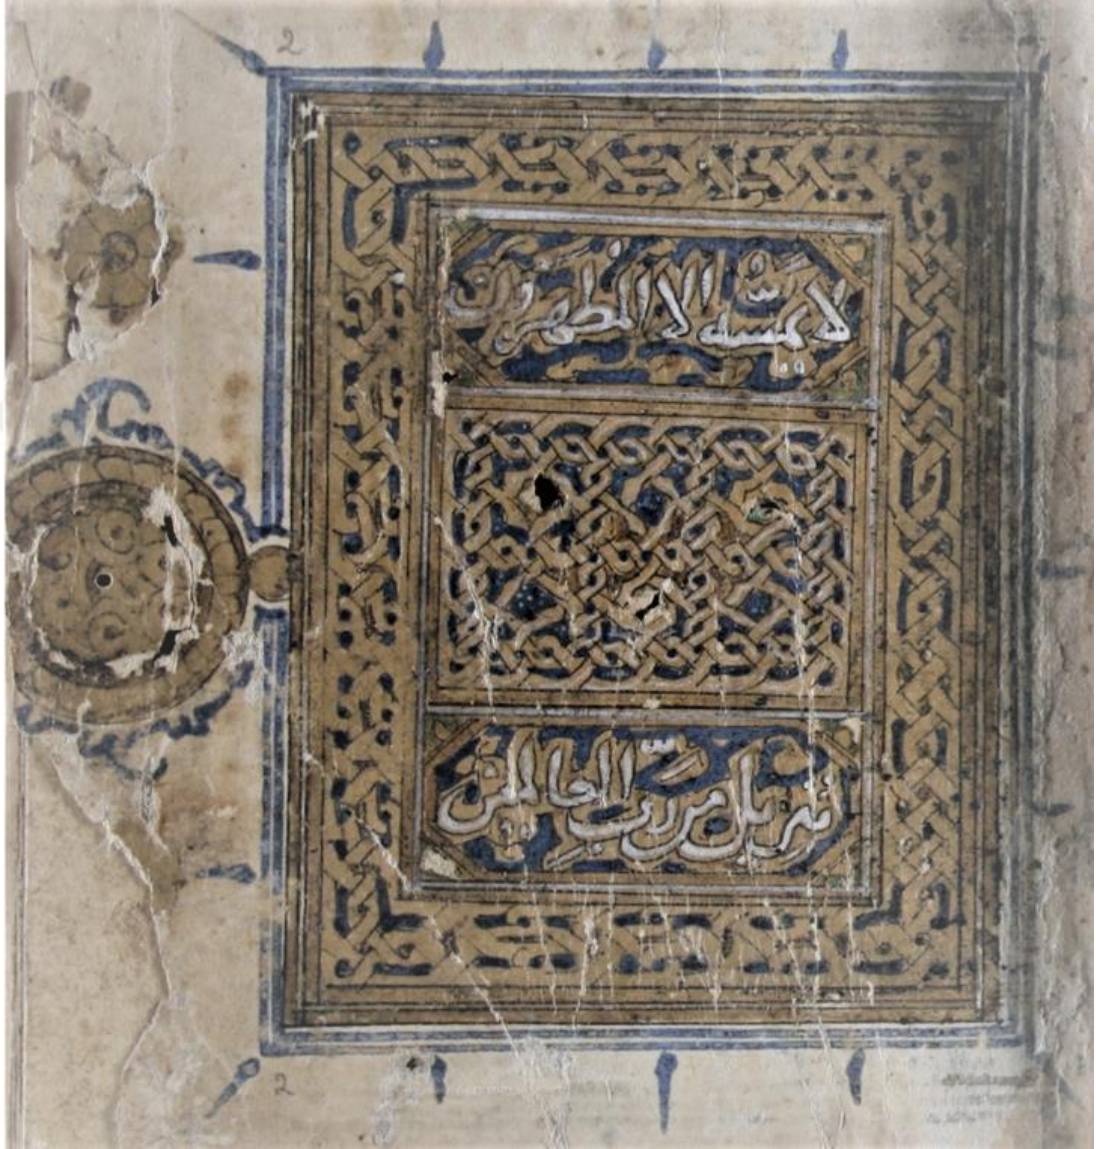 2
لا يمسه الا المطهرون
تنزيل من رب العالمين
2